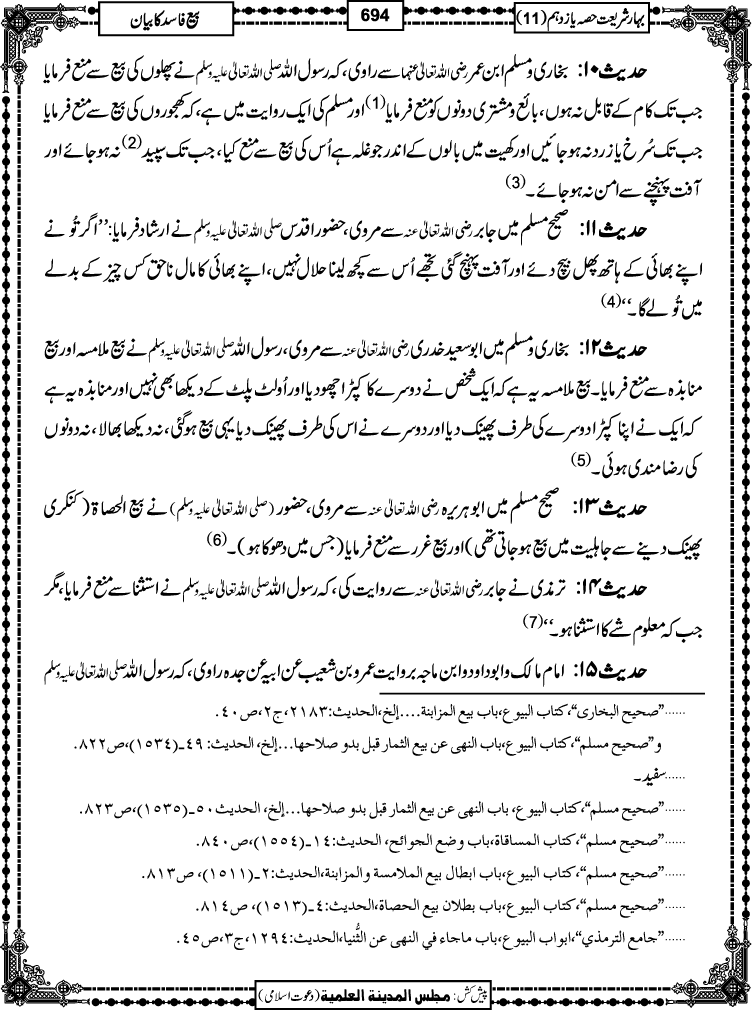 بہار شریعت حصہ یازدہم (11)
694
بیع فاسد کا بیان
حدیث ۱۰: بخاری و مسلم ابن عمر رضی اللہ تعالیٰ عنہما سے راوی، کہ رسول اللہ صلی اللہ تعالیٰ علیہ وسلم نے پھلوں کی بیع سے منع فرمایا
جب تک کام کے قابل نہ ہوں، بائع و مشتری دونوں کو منع فرمایا (1) اور مسلم کی ایک روایت میں ہے، کہ کھجوروں کی بیع سے منع فرمایا
جب تک سُرخ یا زرد نہ ہو جائیں اور کھیت میں بالوں کے اندر جو غلہ ہے اُس کی بیع سے منع کیا، جب تک سپید (2) نہ ہو جائے اور
آفت پہنچنے سے امن نہ ہو جائے۔ (3)
حدیث ۱۱: صحیح مسلم میں جابر رضی اللہ تعالیٰ عنہ سے مروی، حضور اقدس صلی اللہ تعالیٰ علیہ وسلم نے ارشاد فرمایا: ’’اگر تُو نے
اپنے بھائی کے ہاتھ پھل بیچ دئے اور آفت پہنچ گئی تجھے اُس سے کچھ لینا حلال نہیں، اپنے بھائی کا مال ناحق کس چیز کے بدلے
میں تُو لے گا۔‘‘ (4)
حدیث ۱۲: بخاری و مسلم میں ابو سعید خدری رضی اللہ تعالیٰ عنہ سے مروی، رسول اللہ صلی اللہ تعالیٰ علیہ وسلم نے بیع ملامسہ اور بیع
منابذہ سے منع فرمایا۔ بیع ملامسہ یہ ہے کہ ایک شخص نے دوسرے کا کپڑا چھو دیا اور اُولٹ پلٹ کے دیکھا بھی نہیں اور منابذہ یہ ہے
کہ ایک نے اپنا کپڑا دوسرے کی طرف پھینک دیا اور دوسرے نے اس کی طرف پھینک دیا یہی بیع ہو گئی، نہ دیکھا بھالا، نہ دونوں
کی رضا مندی ہوئی۔ (5)
حدیث ۱۳: صحیح مسلم میں ابوہریرہ رضی اللہ تعالیٰ عنہ سے مروی، حضور (صلی اللہ تعالیٰ علیہ وسلم) نے بیع الحصاۃ (کنکری
پھینک دینے سے جاہلیت میں بیع ہو جاتی تھی) اور بیع غرر سے منع فرمایا (جس میں دھوکا ہو)۔ (6)
حدیث ۱۴: ترمذی نے جابر رضی اللہ تعالیٰ عنہ سے روایت کی، کہ رسول اللہ صلی اللہ تعالیٰ علیہ وسلم نے استثنا سے منع فرمایا، مگر
جب کہ معلوم شے کا استثنا ہو۔‘‘ (7)
حدیث ۱۵: امام مالک و ابو داود و ابن ماجہ بروایت عمرو بن شعیب عن ابیہ عن جدہ راوی، کہ رسول اللہ صلی اللہ تعالیٰ علیہ وسلم
......”صحيح البخاری“، کتاب البيوع، باب بيع المزابنة....إلخ،الحدیث:۲۱۸۳،ج۲،ص۴۰.
و”صحيح مسلم“، کتاب البيوع، باب النهی عن بيع الثمار قبل بدو صلاحها...إلخ، الحديث: ۴۹ـ(۱۵۳۴)،ص۸۲۲.
......سفید۔
......”صحيح مسلم“، کتاب البيوع، باب النهی عن بيع الثمار قبل بدو صلاحها...إلخ، الحديث ۵۰ـ(۱۵۳۵)،ص۸۲۳.
......”صحيح مسلم“، کتاب المساقاة،باب وضع الجوائح، الحديث:۱۴ـ(۱۵۵۴)،ص۸۴۰.
......”صحيح مسلم“، کتاب البيوع،باب ابطال بيع الملامسة والمزابنة،الحديث:۲ـ(۱۵۱۱)، ص۸۱۳.
......”صحيح مسلم“، کتاب البيوع، باب بطلان بيع الحصاة،الحديث:۴ـ(۱۵۱۳)، ص۸۱۴.
......”جامع الترمذي“،ابواب البيوع،باب ماجاء في النهى عن الثُّنيا،الحديث:۱۲۹۴،ج۳،ص۴۵.
پیش کش: مجلس المدينة العلمية (دعوت اسلامی)